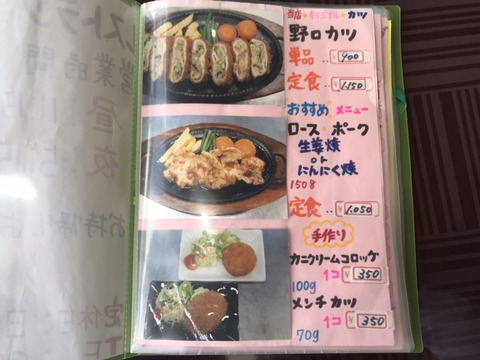 ストラ
営業時間
昼
夜
お持帰り
定休日
当店 オリジナル カツ
野口カツ
単品 ¥900
定食‥ ¥1150
おすすめ メニュー
ロース ポーク
生姜焼
or
にんにく焼
150g
定食‥ ¥1.050
手作り
カニクリームコロッケ
1コ ¥350
100g
メンチカツ
1コ ¥350
70g